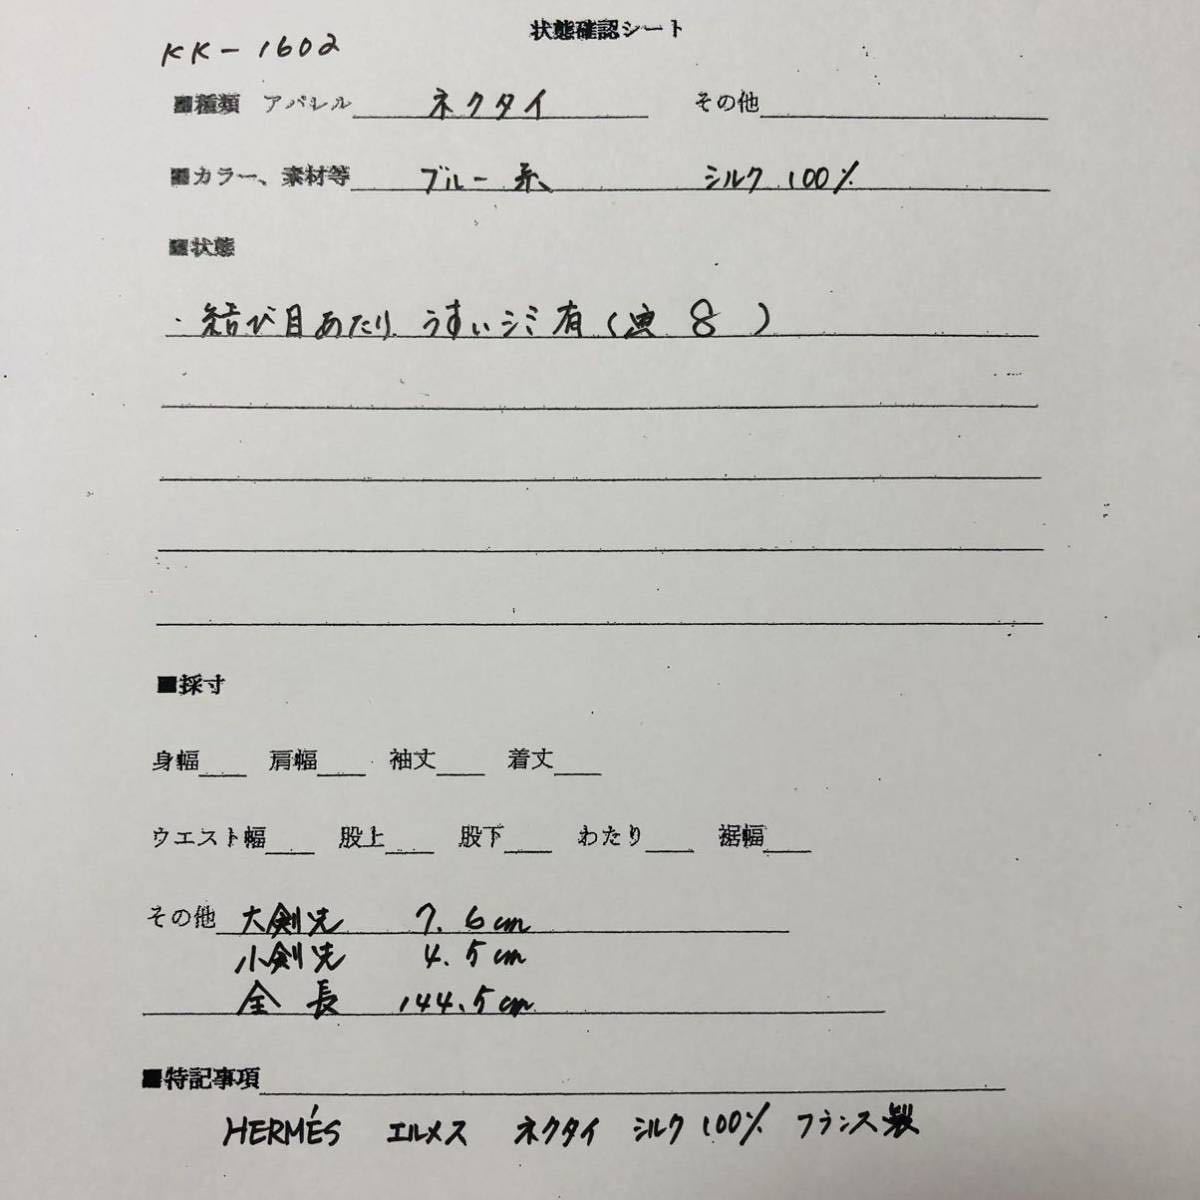 状態確認シート
KK-1602
■種類 アパレル ネクタイ その他
■カラー、素材等 ブルー系 シルク 100%
■状態
・結び目あたり うすいシミ有(画 8 )
■採寸
身幅 肩幅 袖丈 着丈
ウエスト幅 股上 股下 わたり 裾幅
その他 大剣先 7.6cm
小剣先 4.5cm
全長 144.5cm
■特記事項
HERMÉS エルメス ネクタイ シルク 100% フランス製